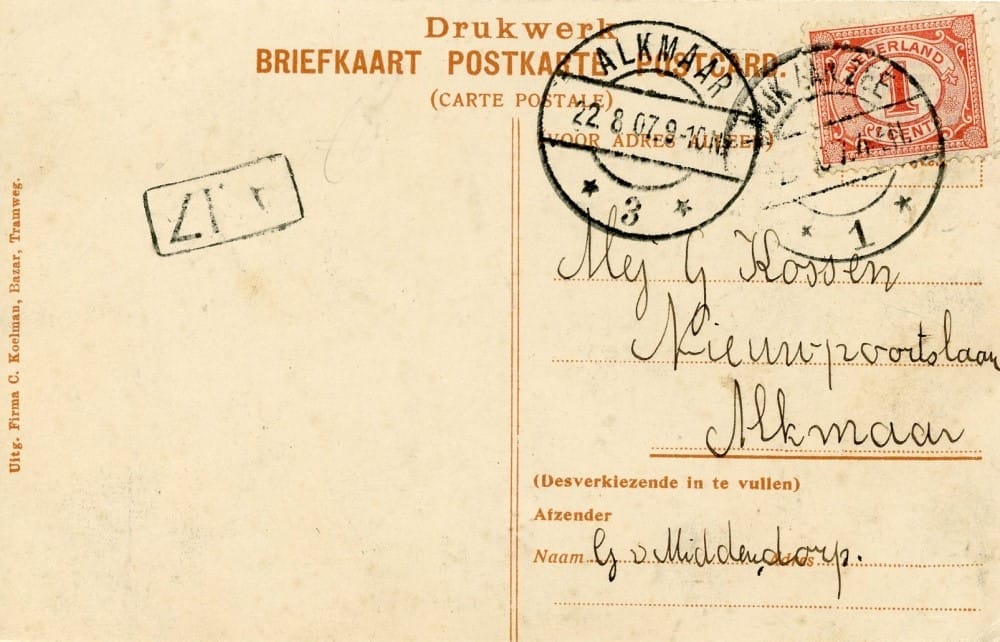 Drukwerk
BRIEFKAART POSTKARTE POSTCARD.
(CARTE POSTALE)
(VOOR ADRES ALLEEN)
ALKMAAR
22.8.07.9-10.N
3
WIJK AAN ZEE
1
NEDERLAND
1
CENT
Uitg. Firma C. Koelman, Bazar, Tramweg.
Mej G Kossen
Nieuwpoortslaan
Alkmaar
(Desverkiezende in te vullen)
Afzender
Naam G v Middendorp. Adres